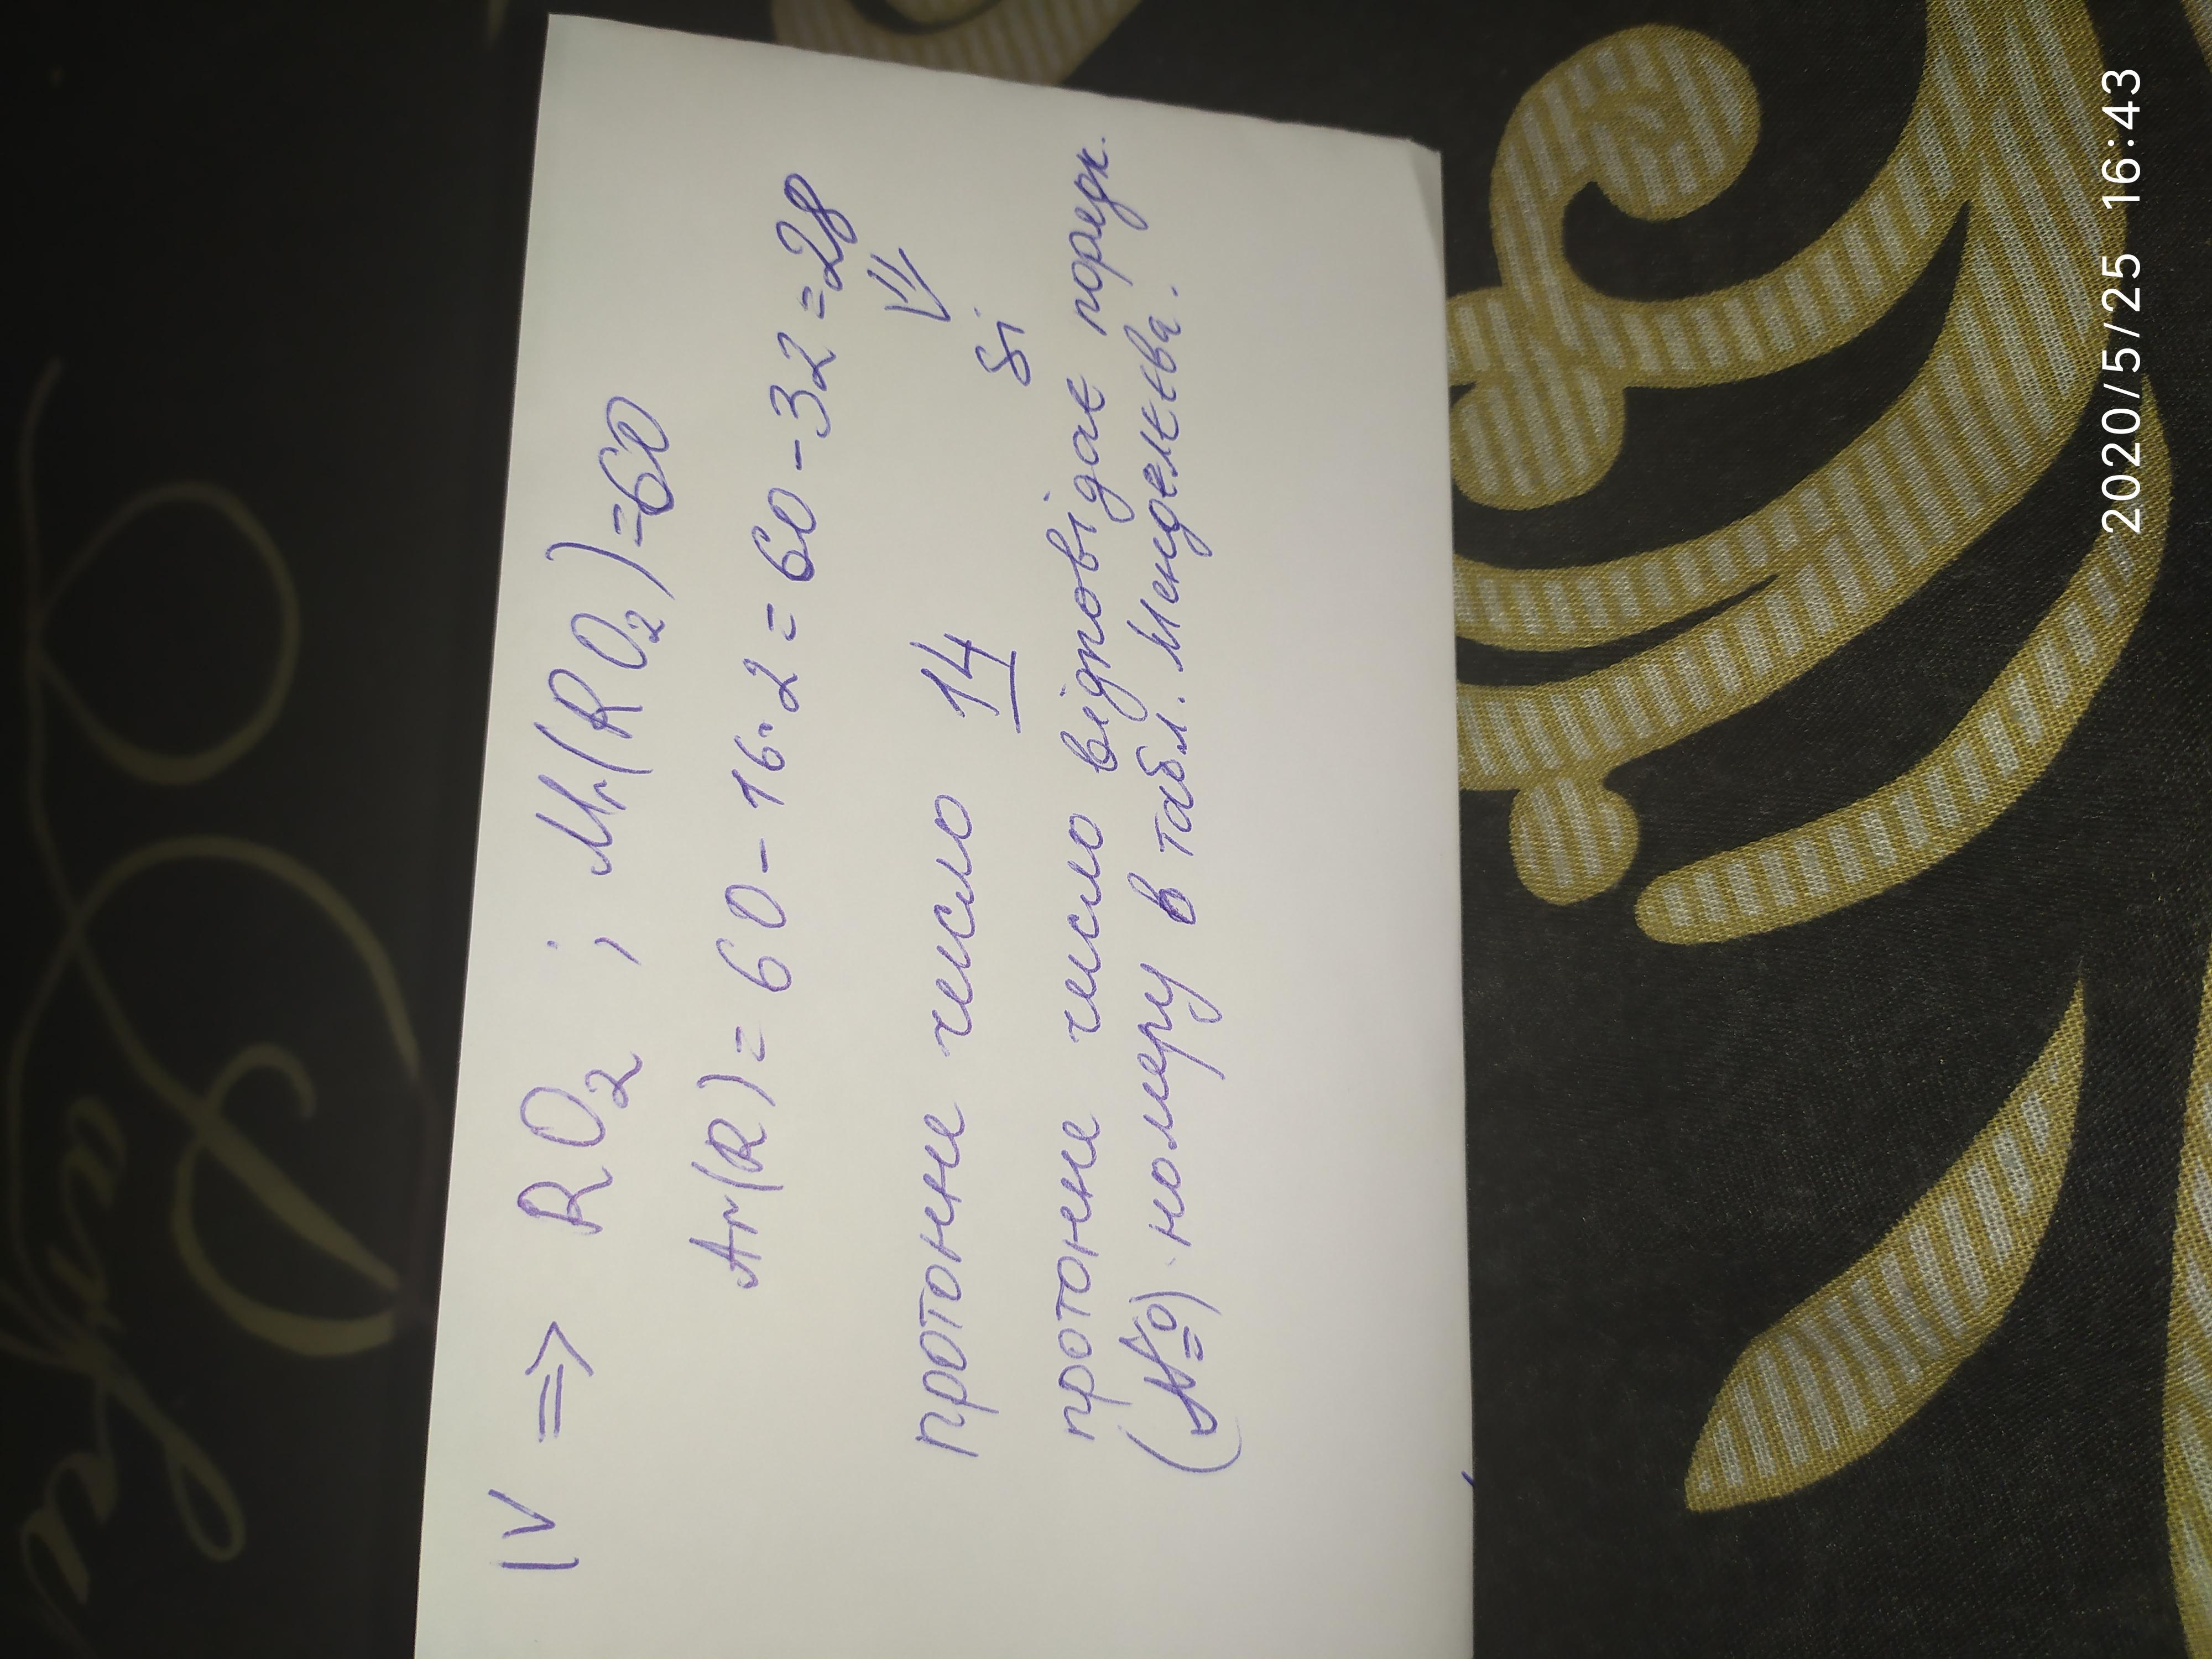 IV => RO₂ ; Mr(RO₂)=60
Ar(R)= 60-16·2 = 60-32=28
Si
протонне число 14
протонне число відповідає порядк.
(№) номеру в табл. Менделєєва.
2020/5/25 16:43